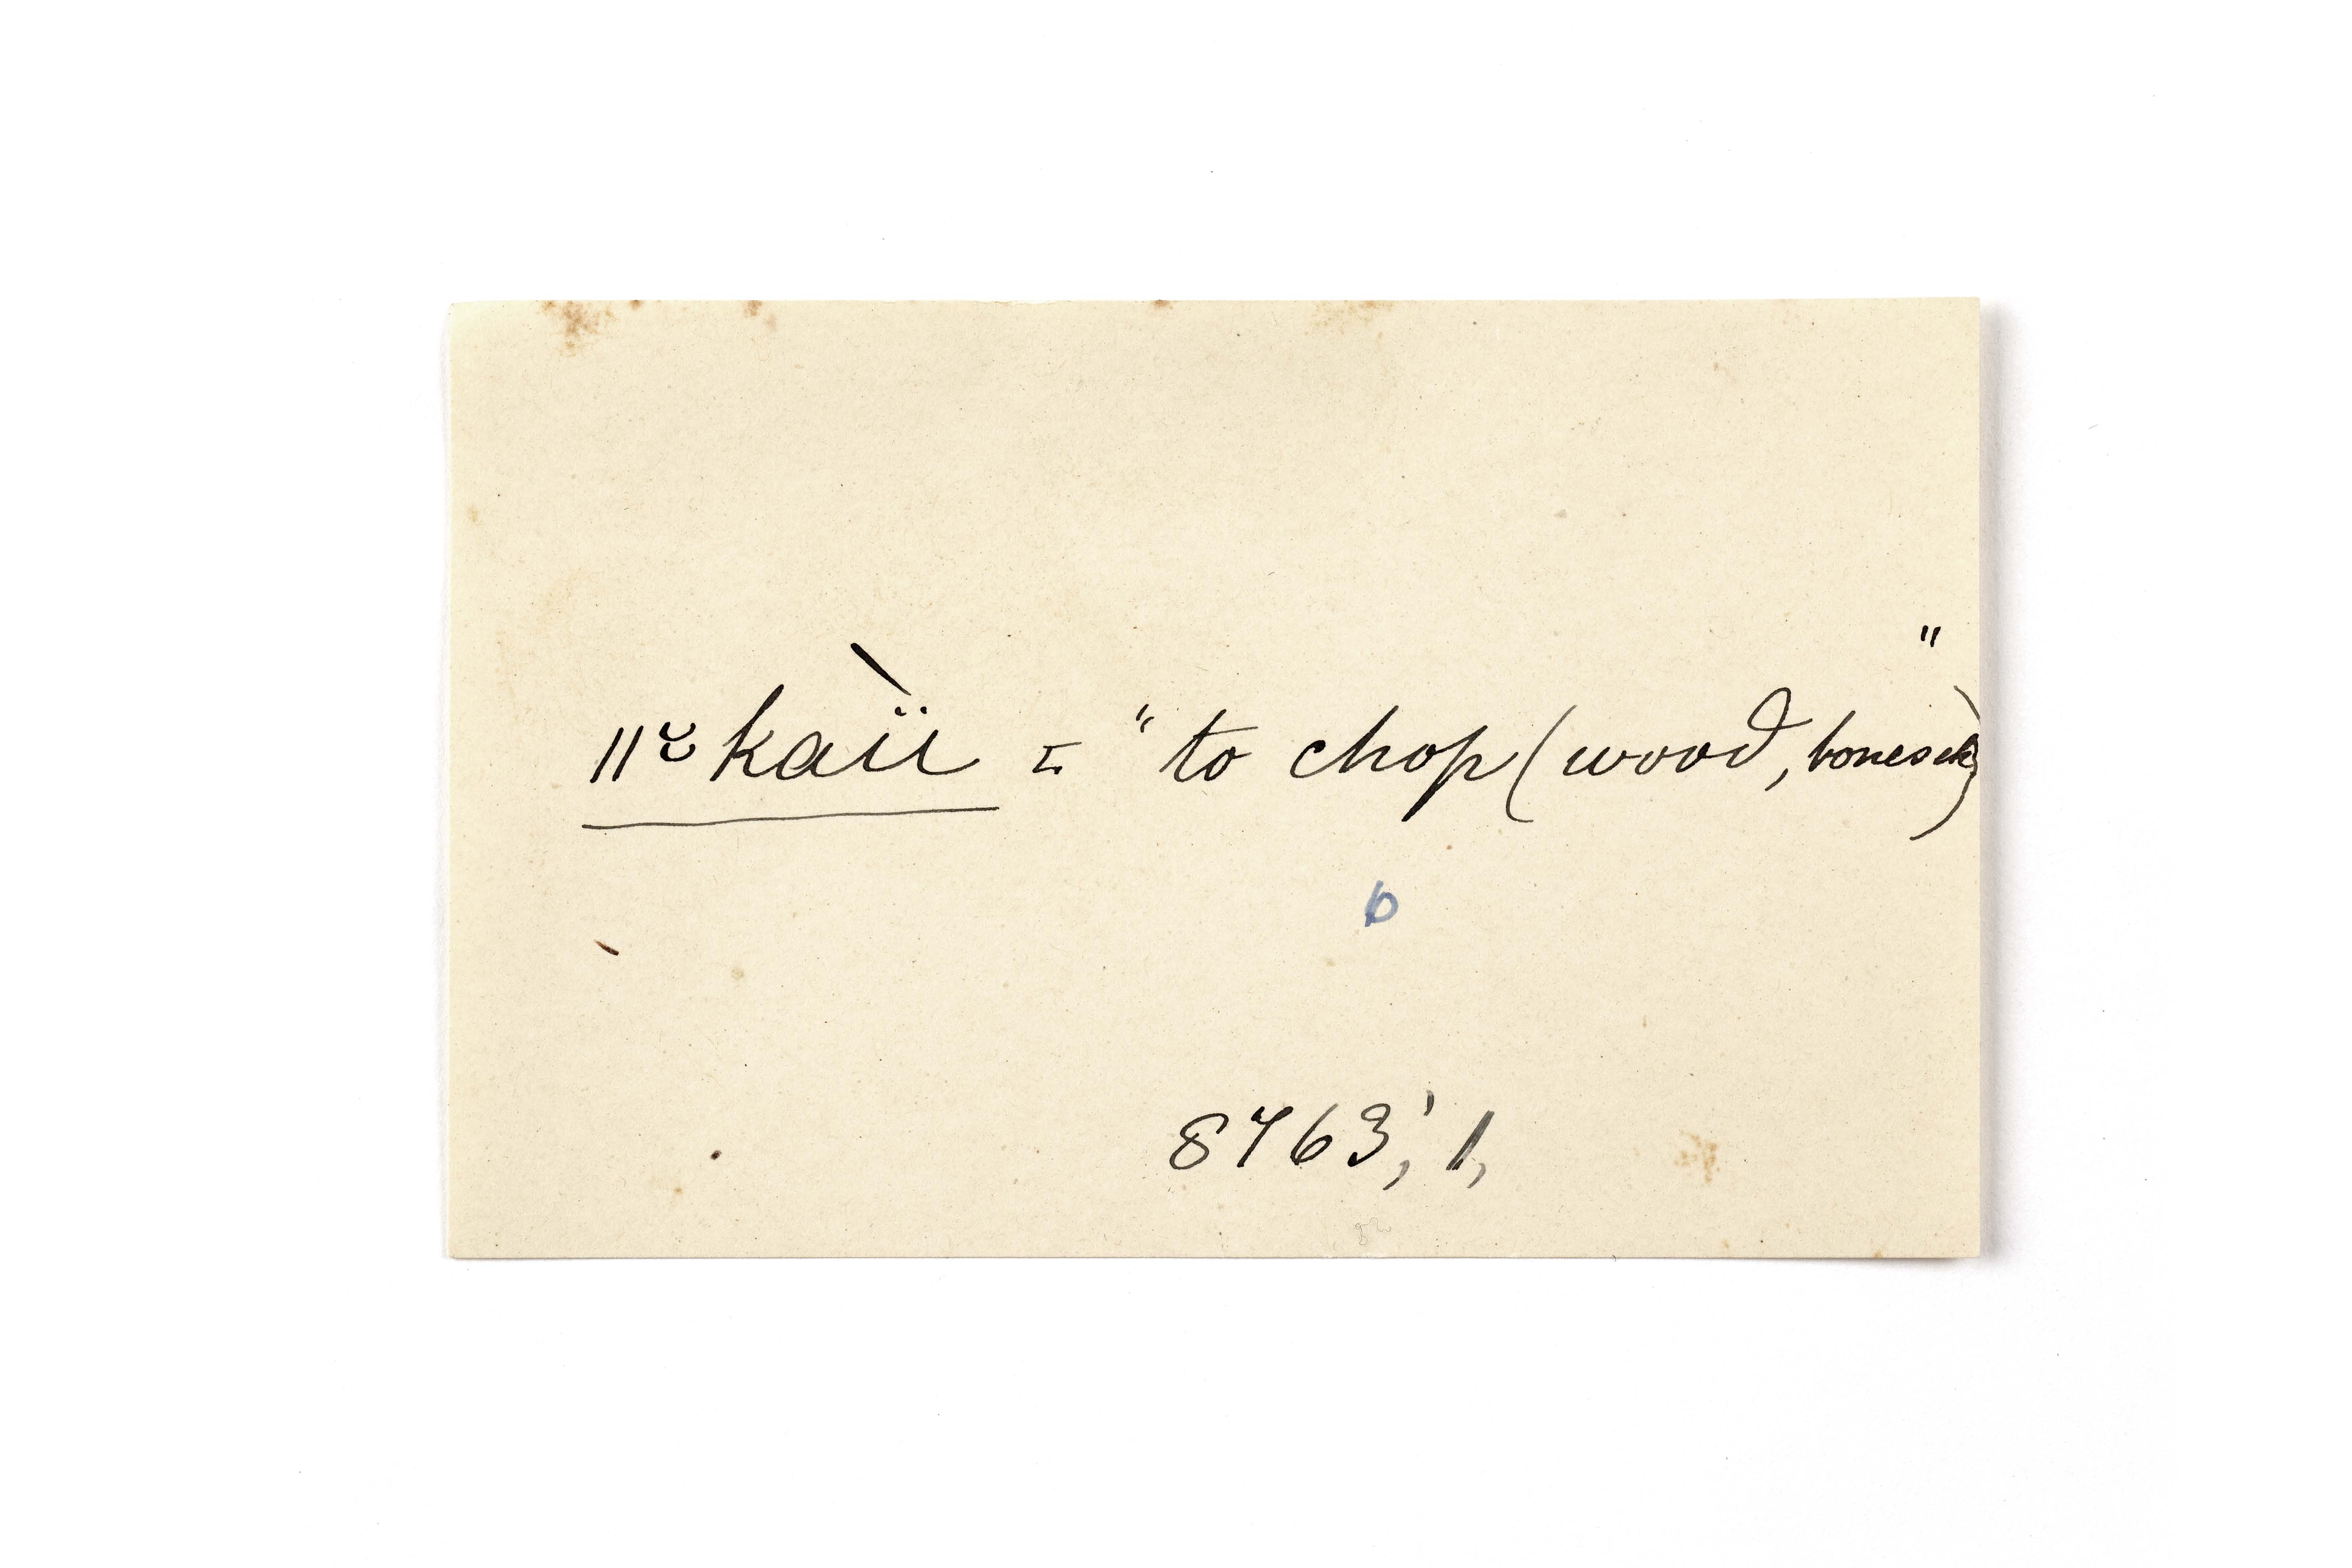 ǁ˘̯kàïi = "to chop (wood, bones etc)"
b
8763, '1,